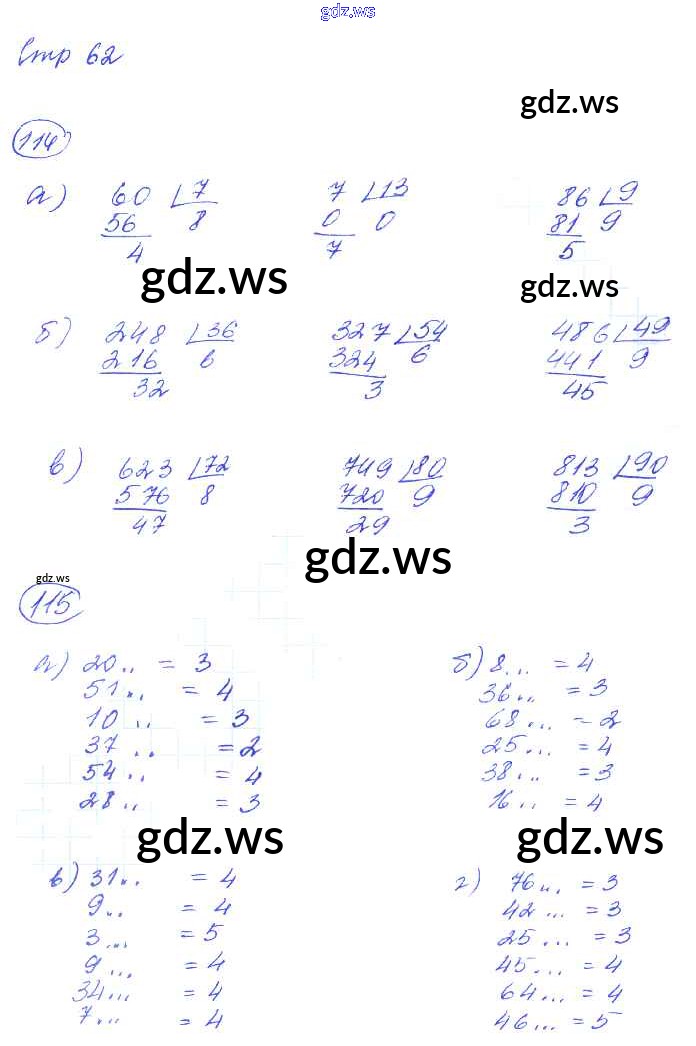 gdz.ws
Стр 62
gdz.ws
114
а) 60 7 7 13 86 9
56 8 0 0 81 9
4 7 5
gdz.ws gdz.ws
б) 248 36 327 54 486 49
216 6 324 6 441 9
32 3 45
в) 623 72 749 80 813 90
576 8 720 9 810 9
47 29 3
gdz.ws
gdz.ws
115
а) 20.. = 3
51.. = 4
10 .. = 3
37 .. = 2
54.. = 4
28.. = 3
б) 8... = 4
36... = 3
68... = 2
25... = 4
38... = 3
16.. = 4
gdz.ws gdz.ws
в) 31... = 4
9... = 4
3.... = 5
9... = 4
34... = 4
7... = 4
г) 76... = 3
42... = 3
25... = 3
45... = 4
64... = 4
46... = 5